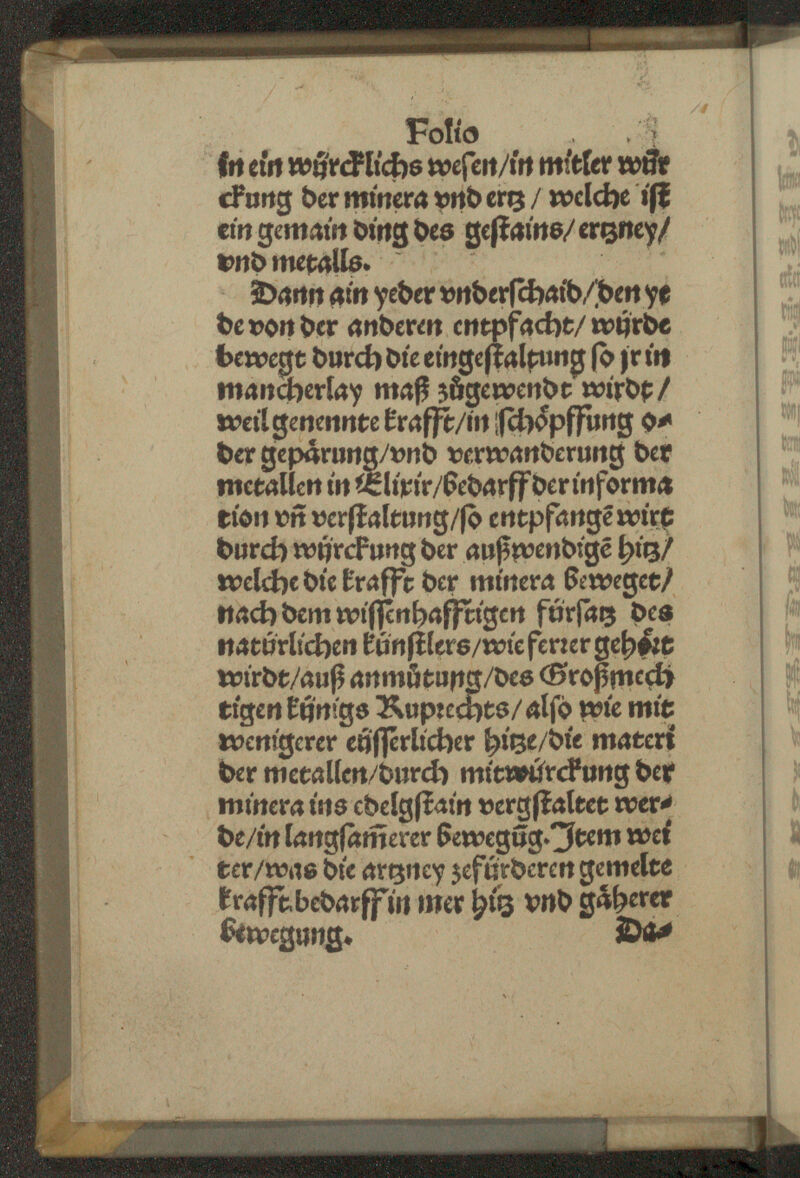 Folio
in ein würcklichs wesen/in mitler wür
ckung der minera vnd ertz / welche ist
ein gemain ding des gestains/ ertzney/
vnd metalls.
Dann ain yeder vnderschaid/den ye
de von der anderen entpfacht/ würde
bewegt durch die eingestaltung so jr in
mancherlay maß zůgewendt wirdt/
weil genennte krafft/in schöpffung o⸗
der gepärung/vnd verwanderung der
metallen in Elixir/bedarff der informa
tion vñ verstaltung/so entpfangē wirt
durch würckung der außwendigē hitz/
welche die krafft der minera beweget/
nach dem wissenhafftigen fürsatz des
natürlichen künstlers/wie ferrer gehört
wirdt/auß anmůtung/des Großmech
tigen künigs Ruprechts/ also wie mit
wenigerer eüsserlicher hitze/die materi
der metallen/durch mitwürckung der
minera ins edelgstain vergstaltet wer⸗
de/in langsam̄erer bewegūg. Item wei
ter/was die artzney zefürderen gemelte
krafft bedarff in mer hitz vnd gäherer
bewegung. Da⸗